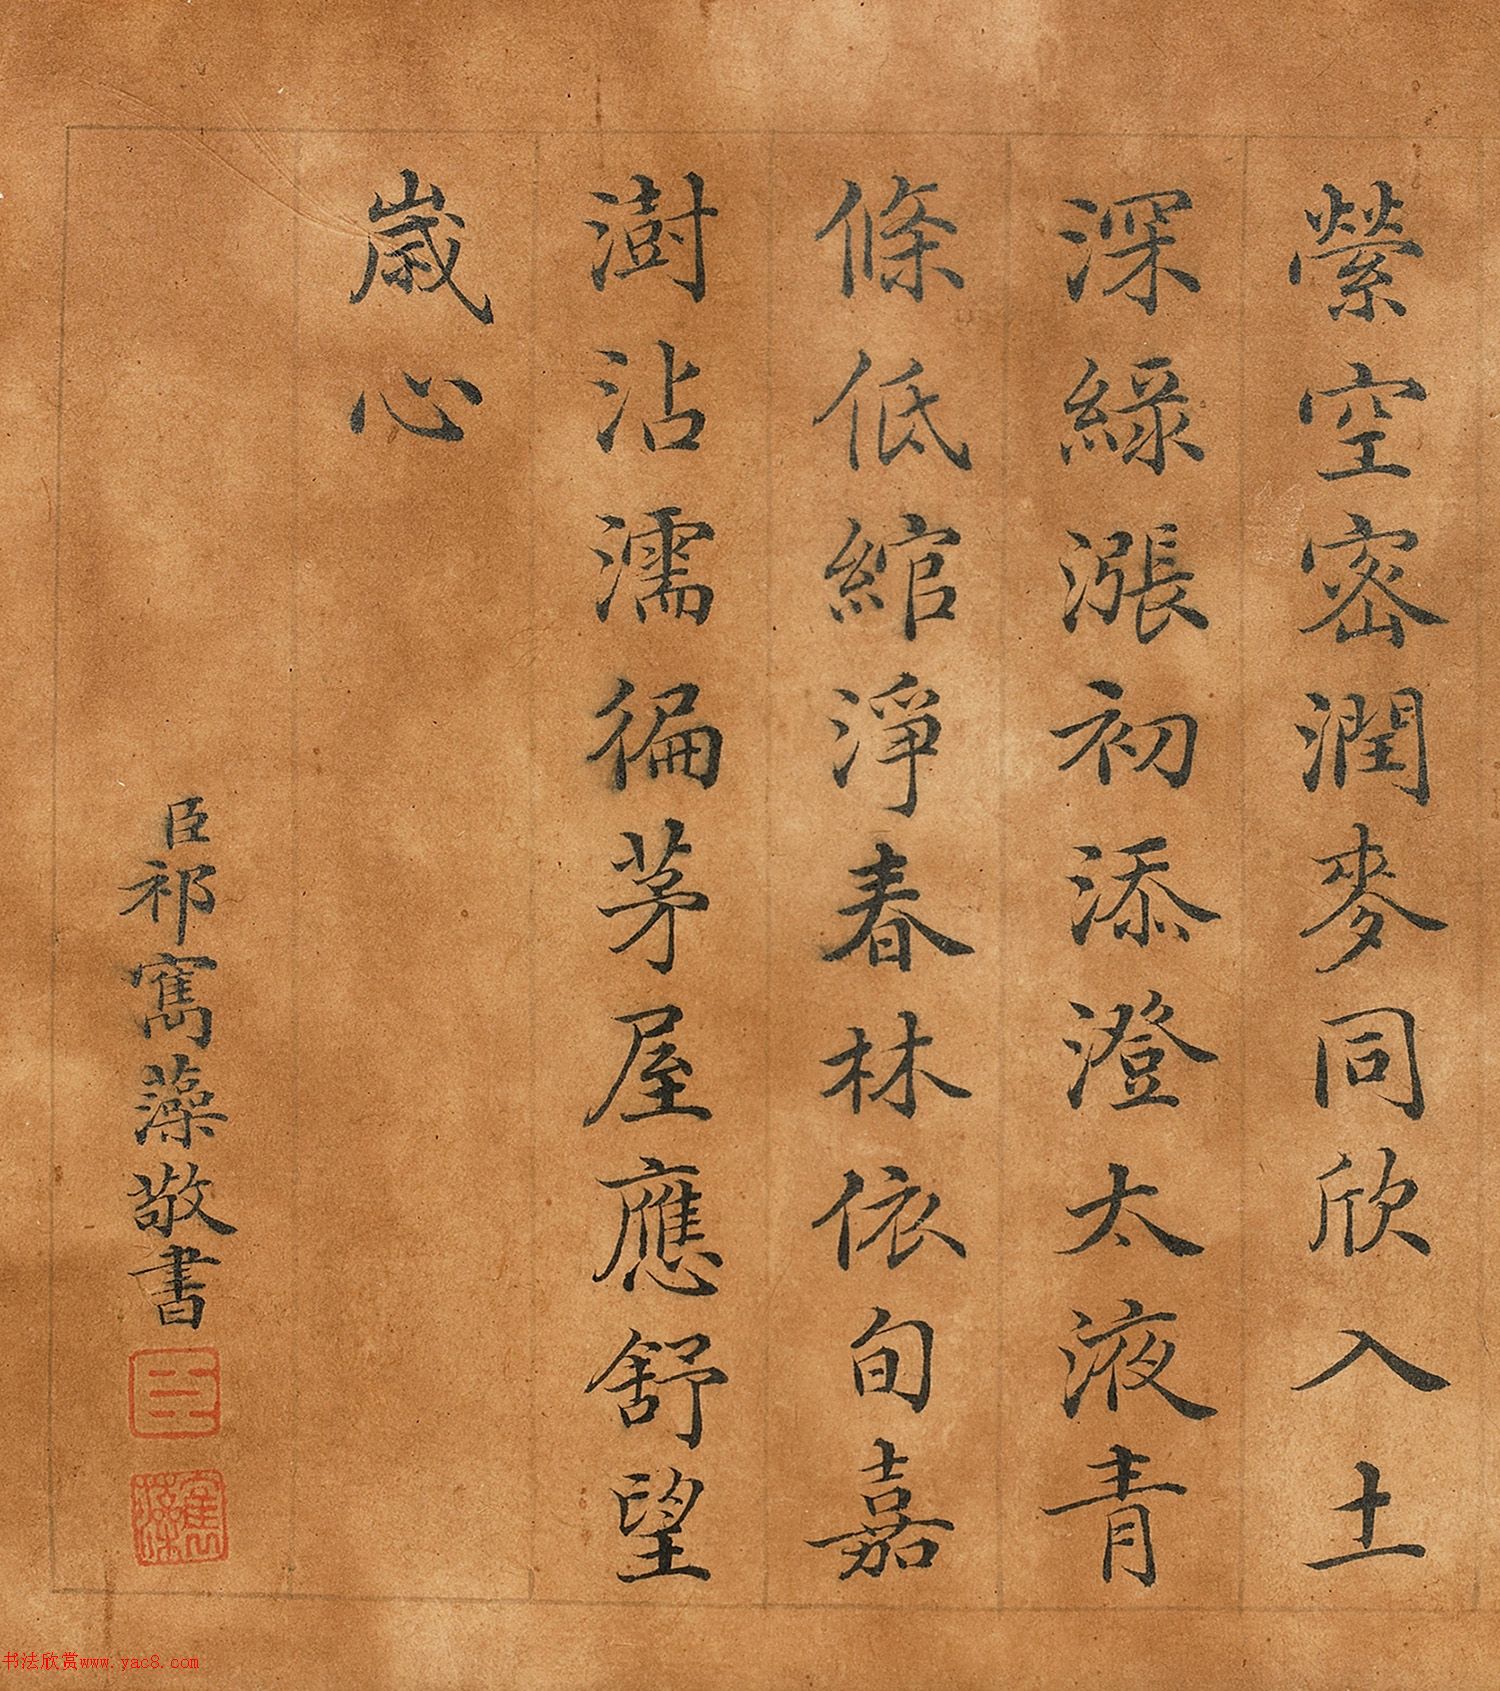 縈空密潤麥同欣入土
深綠漲初添澄太液青
條低綰淨春林依旬嘉
澍沾濡徧茅屋應舒望
歲心
臣祁寯藻敬書
臣
寯藻
书法欣赏www.yac8.com